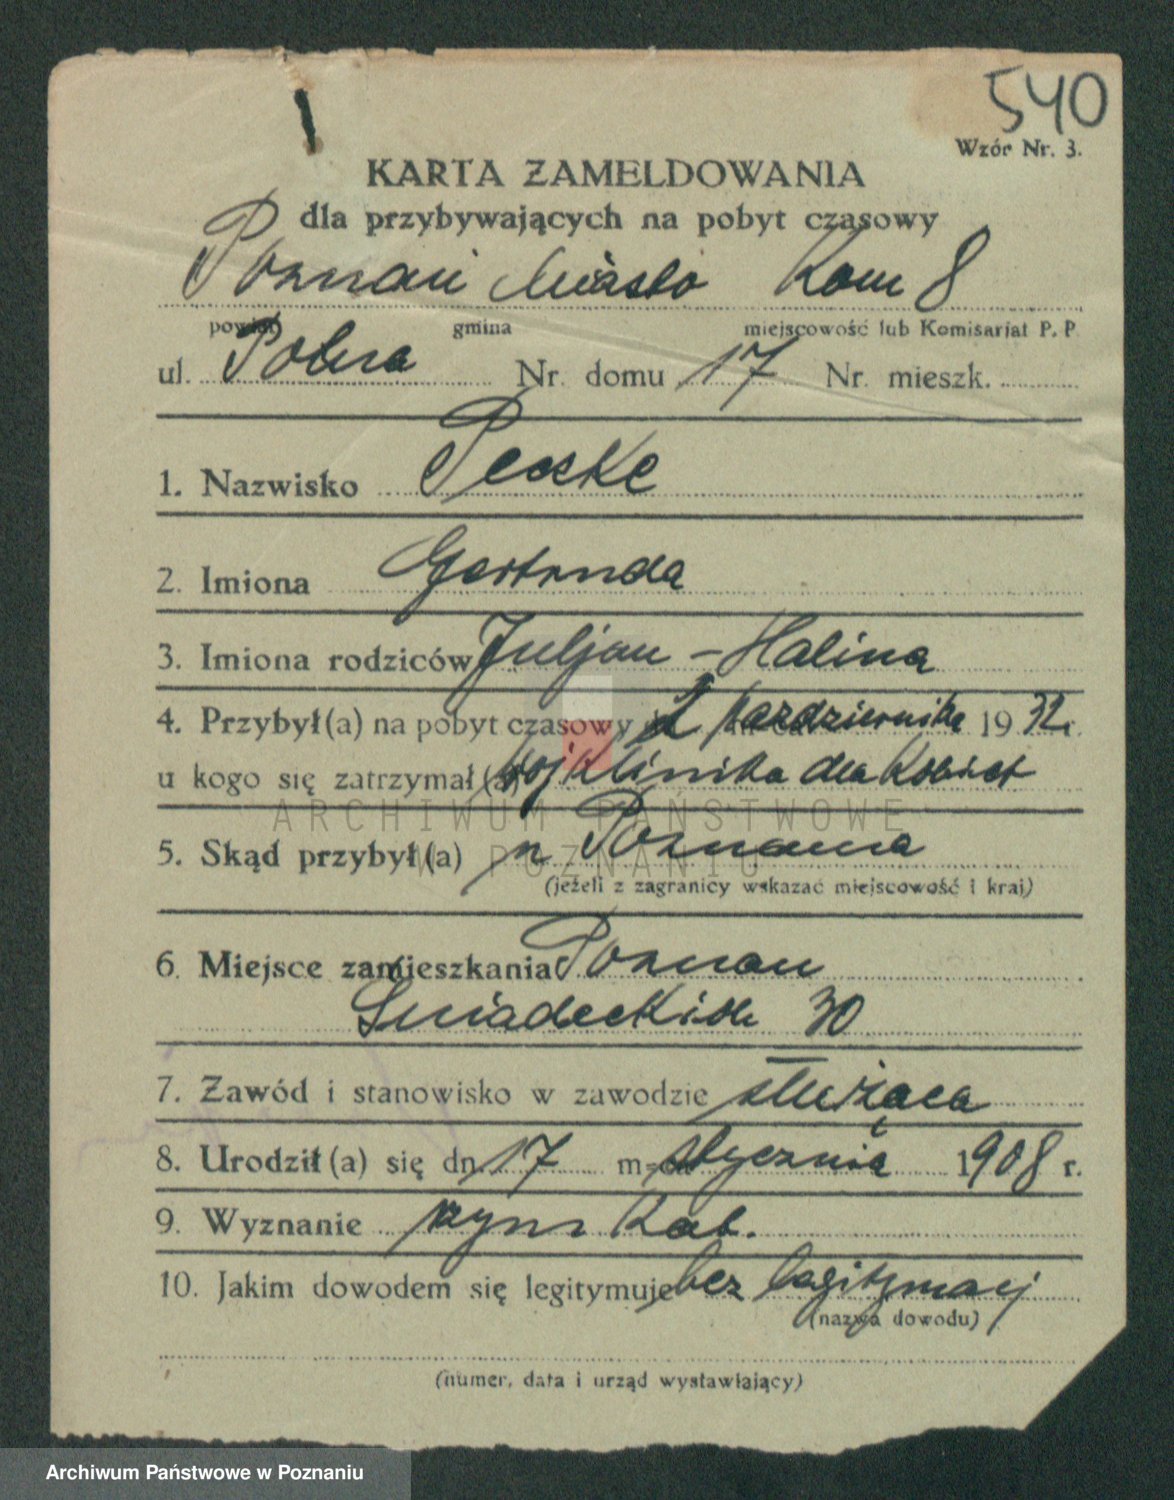 540
Wzór Nr. 3.
KARTA ZAMELDOWANIA
dla przybywających na pobyt czasowy
Poznań Miasto Kom 8
powiat gmina miejscowość lub Komisariat P. P.
ul. Polna Nr. domu 17 Nr. mieszk.
1. Nazwisko Peske
2. Imiona Gertruda
3. Imiona rodziców Juljan - Halina
4. Przybył(a) na pobyt czasowy 2 października 1932 r.
u kogo się zatrzymał(a) Woj Klinika dla Kobiet
ARCHIWUM PAŃSTWOWE
W POZNANIU
5. Skąd przybył(a) Poznania
(jeżeli z zagranicy wskazać miejscowość i kraj)
6. Miejsce zamieszkania Poznan
Sniadeckich 30
7. Zawód i stanowisko w zawodzie służąca
8. Urodził(a) się dn. 17 m-ca stycznia 1908 r.
9. Wyznanie rzym kat.
10. Jakim dowodem się legitymuje bez legitymacj
(nazwa dowodu)
(numer, data i urząd wystawiający)
Archiwum Państwowe w Poznaniu